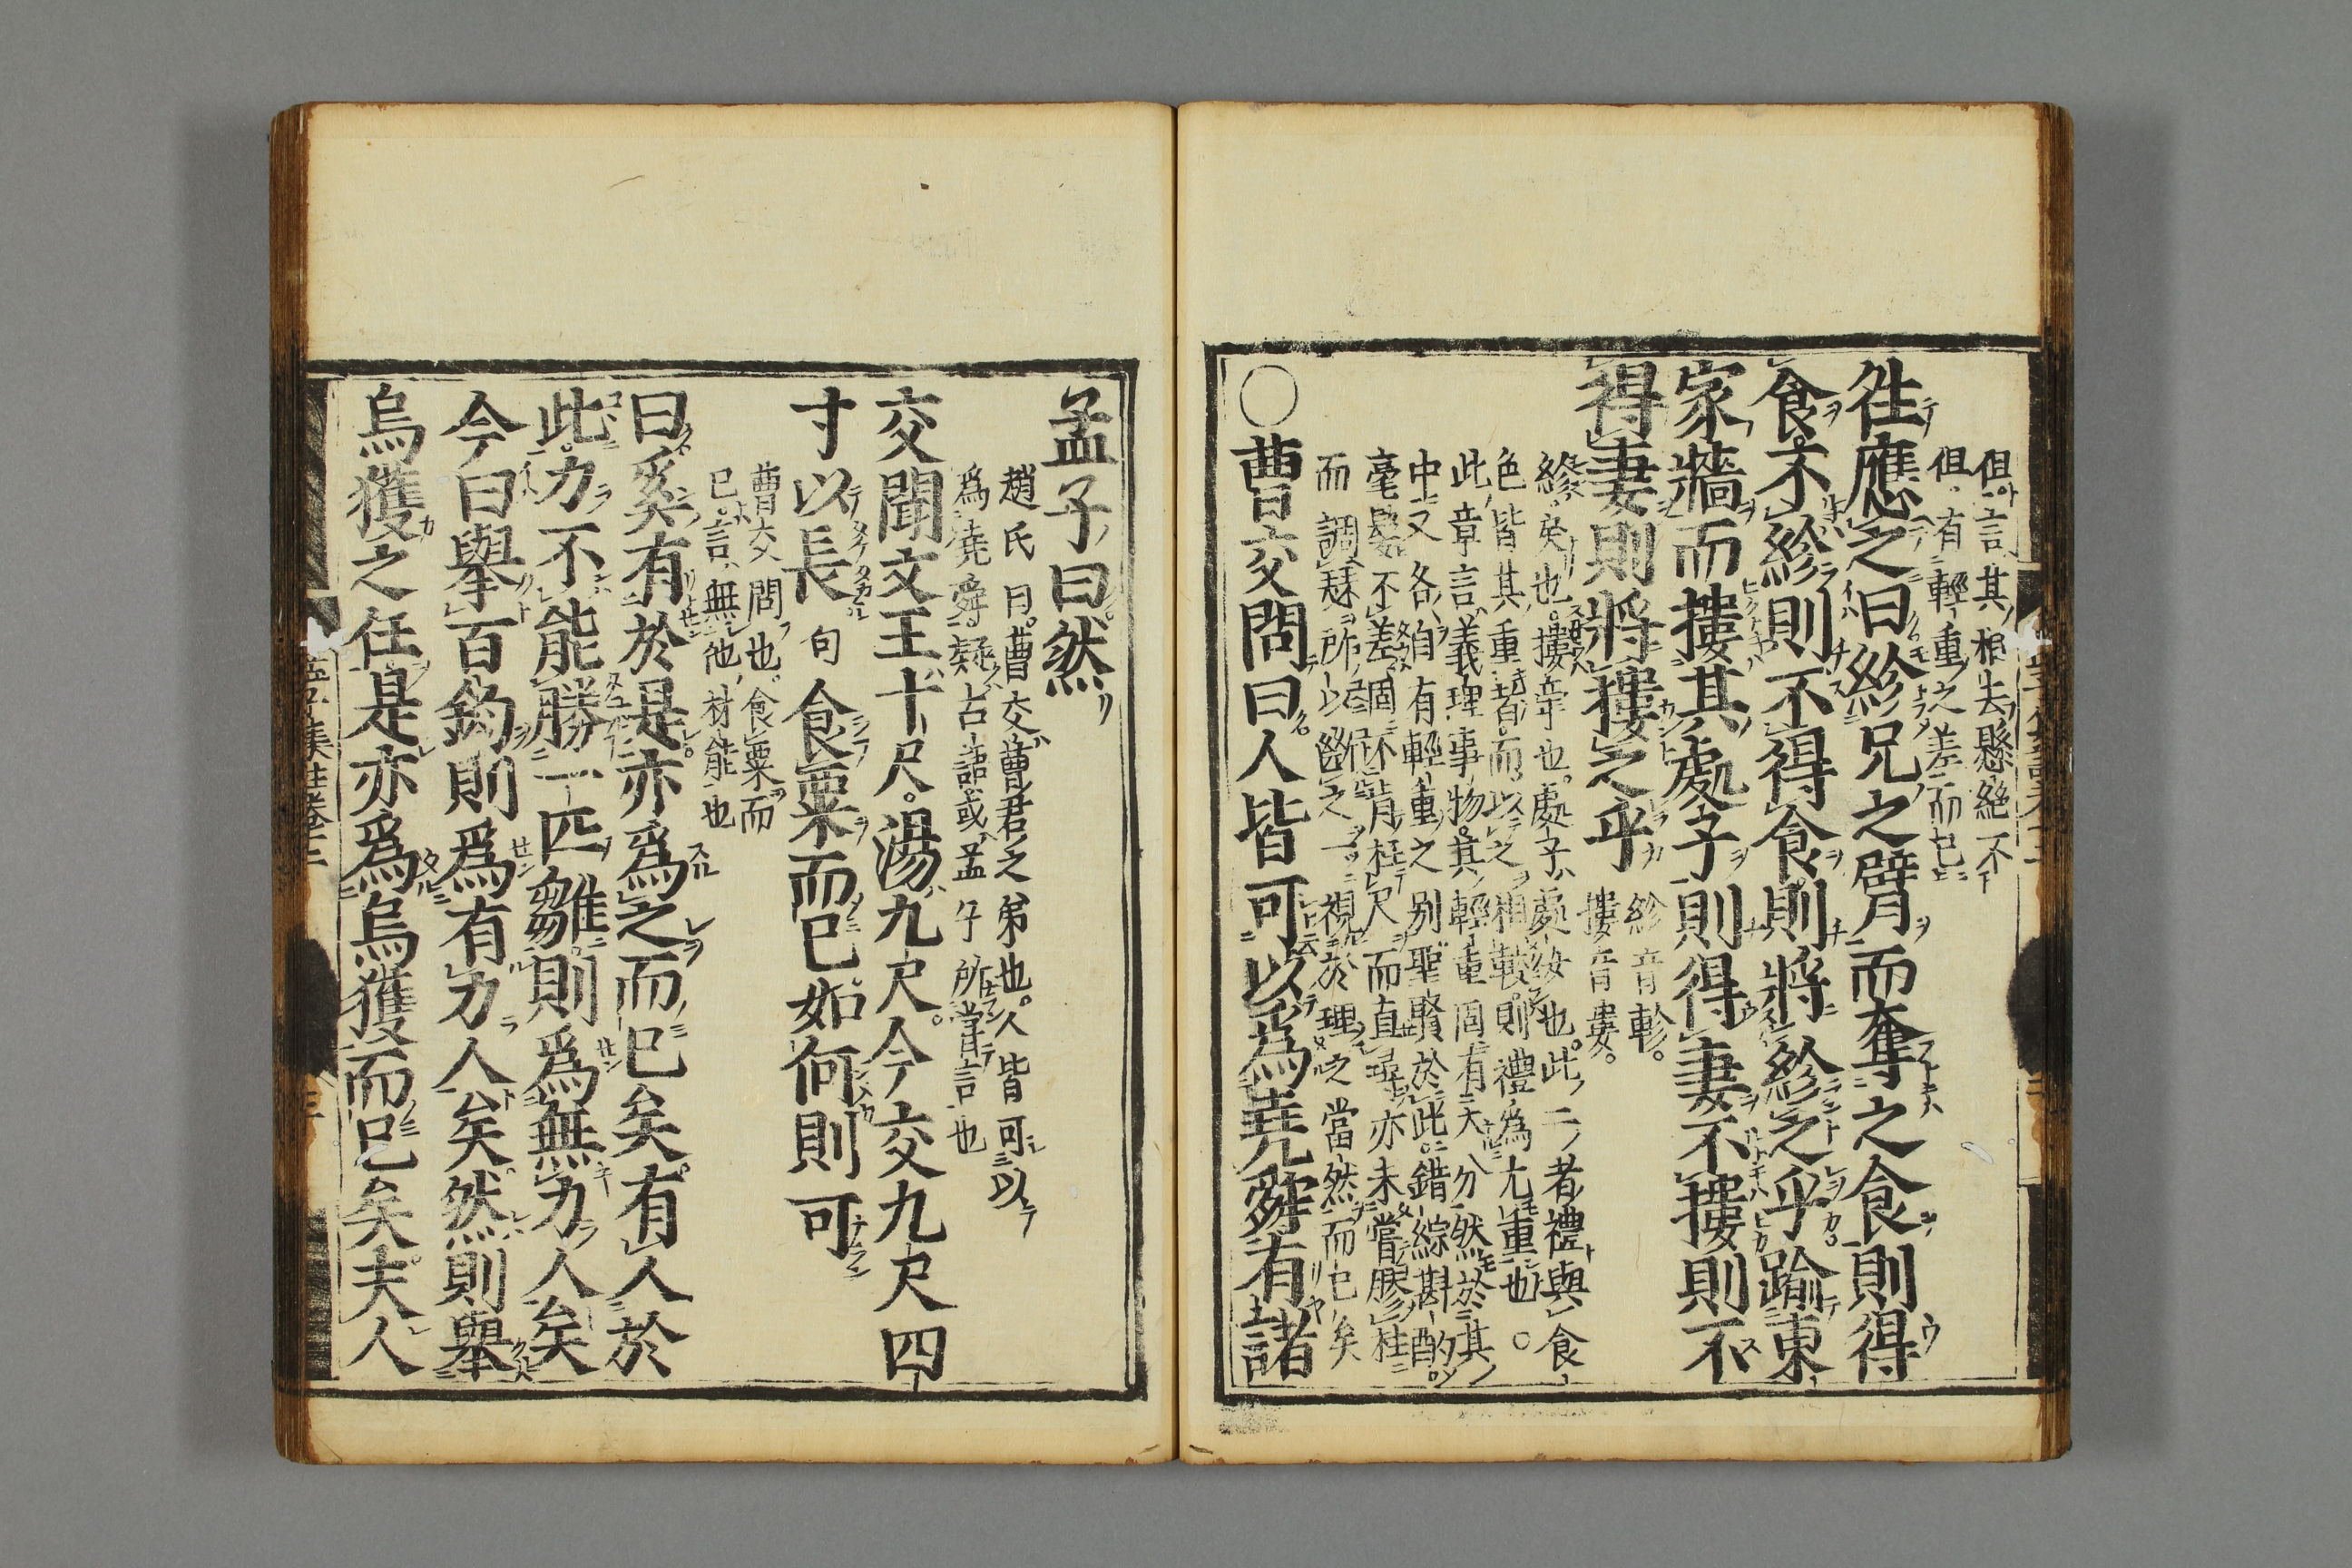 但言其相去懸絶不
但有輕重之差而已
徃應之曰紾兄之臂而奪之食則得
食不紾則不得食則將紾之乎踰東
家牆而摟其處子則得妻不摟則不
得妻則將摟之乎
紾音軫
摟音婁
紾戾也摟牽也處子處女也此二者禮與食
色皆其重者而以之相較則禮為尤重也○
此章言義理事物其輕重固有大分然於其
中又各自有輕重之别聖賢於此錯綜斟酌
毫髮不差固不肯枉尺而直尋亦未嘗膠柱
而調瑟所以斷之一視於理之當然而已矣
○曹交問曰人皆可以為堯舜有諸
孟子曰然
趙氏曰曹交曹君之弟也人皆可以
爲堯舜疑古語或孟子所嘗言也
交聞文王十尺湯九尺今交九尺四
寸以長句食粟而已如何則可
曹交問也食粟而
已言無他材能也
曰奚有於是亦爲之而已矣有人於
此力不能勝一匹雛則爲無力人矣
今曰擧百鈞則爲有力人矣然則擧
烏獲之任是亦爲烏獲而已矣夫人
孟子集註卷十二